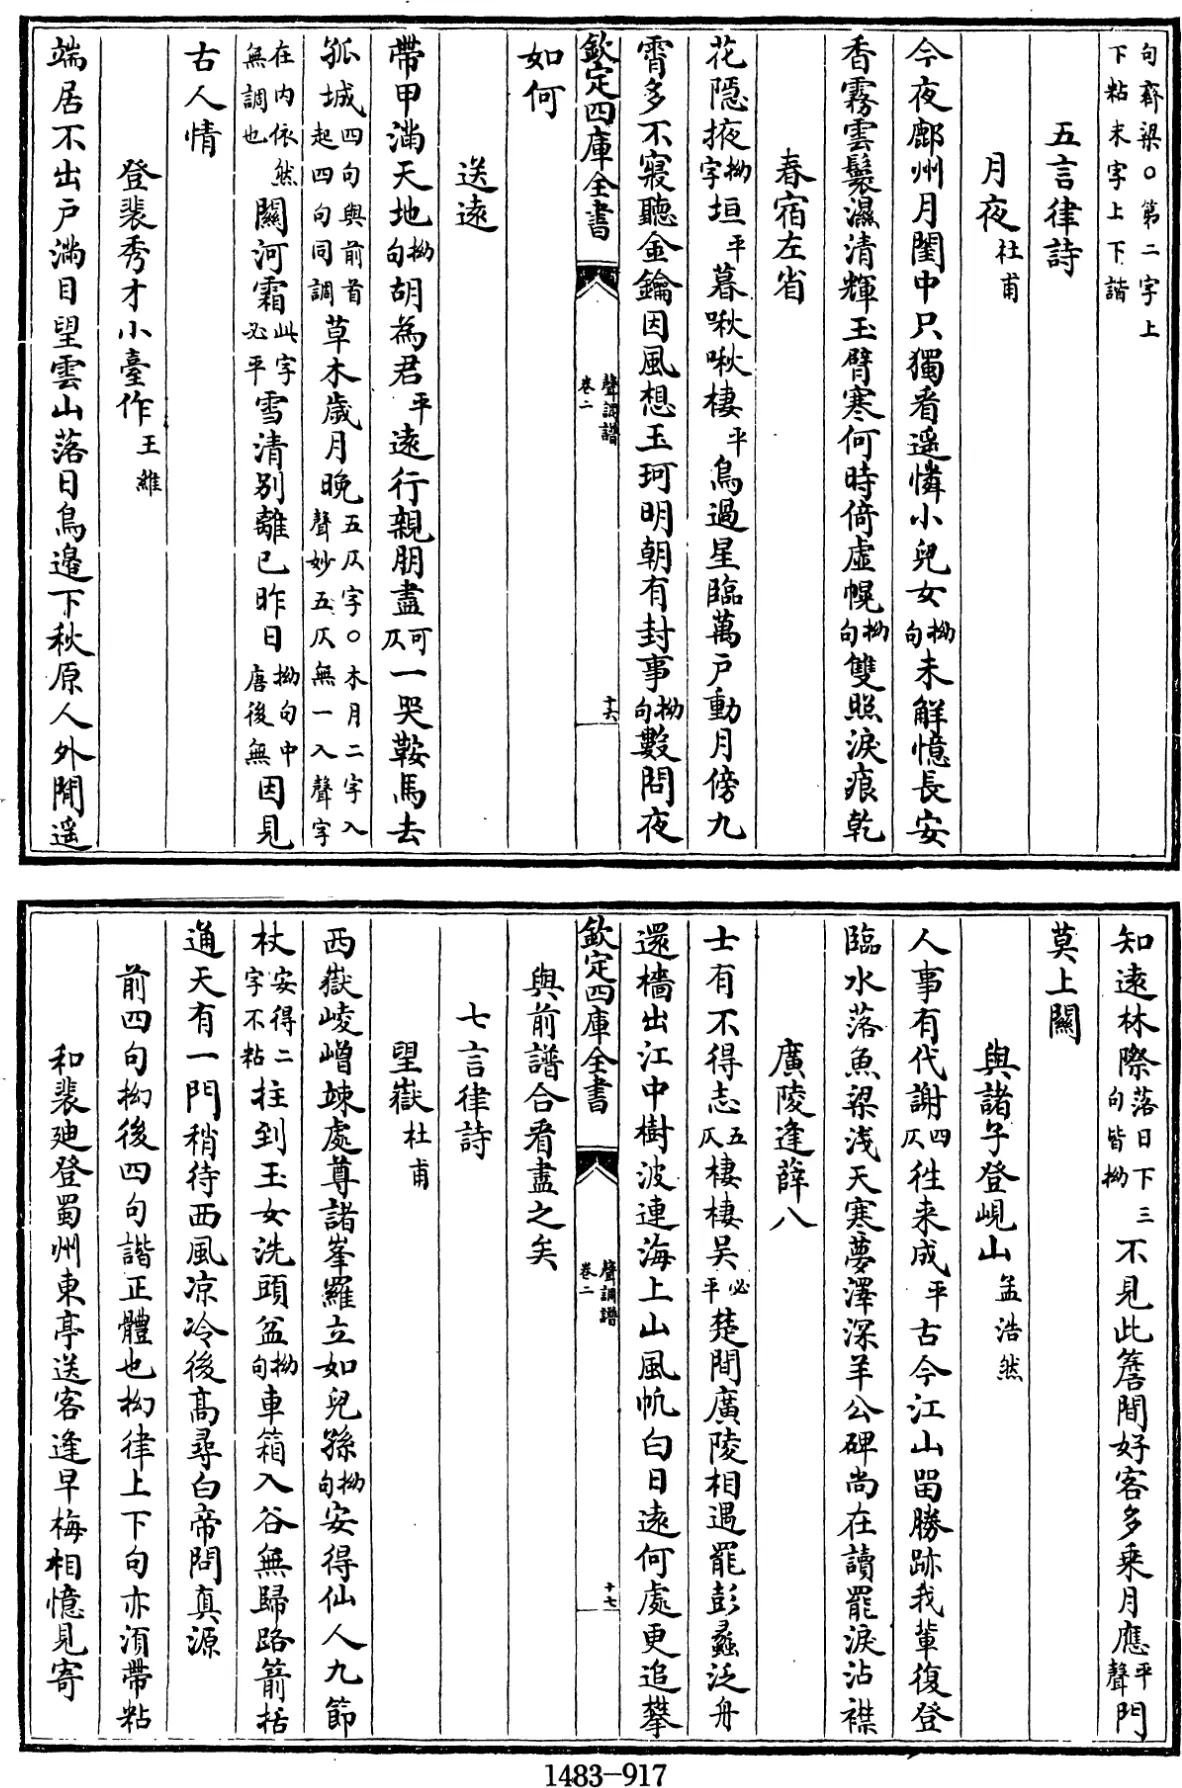 句齊梁○第二字上
下粘末字上下諧
五言律詩
月夜杜甫
今夜鄜州月閨中只獨看遥憐小兒女拗句未解憶長安
香霧雲鬟濕清輝玉臂寒何時倚虛幌拗句雙照淚痕乾
春宿左省
花隱掖拗字垣平暮啾啾棲平鳥過星臨萬戶動月傍九
霄多不寢聽金鑰因風想玉珂明朝有封事拗句數問夜
欽定四庫全書
聲調譜
卷二
十六
如何
送遠
帶甲滿天地拗句胡為君平遠行親朋盡可仄一哭鞍馬去
孤城四句與前首起四句同調草木歲月晚五仄字○木月二字入聲妙五仄無一入聲字
在內依然無調也關河霜此字必平雪清別離已昨日拗句中唐後無因見
古人情
登裴秀才小臺作王維
端居不出戶滿目望雲山落日鳥邊下秋原人外閒遥
知遠林際落日下三句皆拗不見此簷間好客多乘月應平聲門
莫上關
與諸子登峴山孟浩然
人事有代謝四仄徃来成平古今江山留勝跡我輩復登
臨水落魚梁淺天寒夢澤深羊公碑尚在讀罷淚沾襟
廣陵逢薛八
士有不得志五仄棲棲吳必平楚間廣陵相遇罷彭蠡泛舟
還檣出江中樹波連海上山風帆白日遠何處更追攀
欽定四庫全書
聲調譜
卷二
十七
與前譜合看盡之矣
七言律詩
望嶽杜甫
西嶽崚嶒竦處尊諸峯羅立如兒孫拗句安得仙人九節
杖安得二字不粘拄到玉女洗頭盆拗句車箱入谷無歸路箭栝
通天有一門稍待西風凉冷後高尋白帝問真源
前四句拗後四句諧正體也拗律上下句亦須帶粘
和裴廸登蜀州東亭送客逢早梅相憶見寄
1483-917